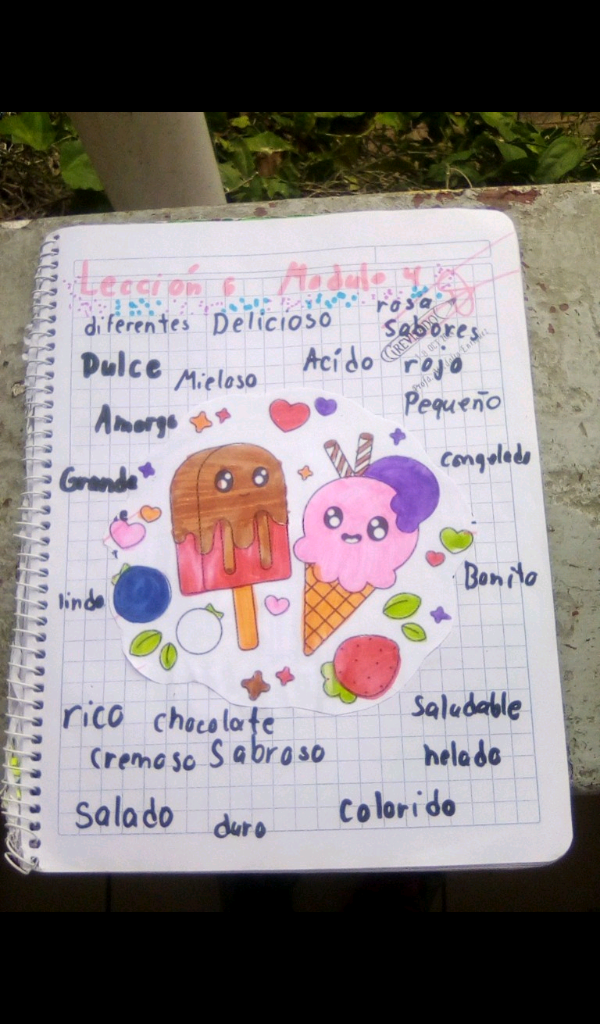 Lección 6 Modulo 4
rosa
diferentes Delicioso Sabores
Dulce Mieloso Acido rojo
Pequeño
Amargo
congelado
Grande
Bonito
lindo
rico chocolate Saludable
cremoso Sabroso helado
Salado duro Colorido